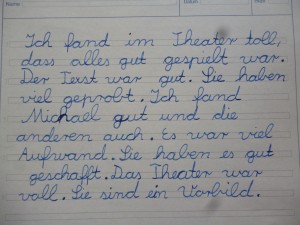 Ich fand im Theater toll,
dass alles gut gespielt war.
Der Text war gut. Sie haben
viel geprobt. Ich fand
Michael gut und die
anderen auch. Es war viel
Aufwand. Sie haben es gut
geschafft. Das Theater war
voll. Sie sind ein Vorbild.